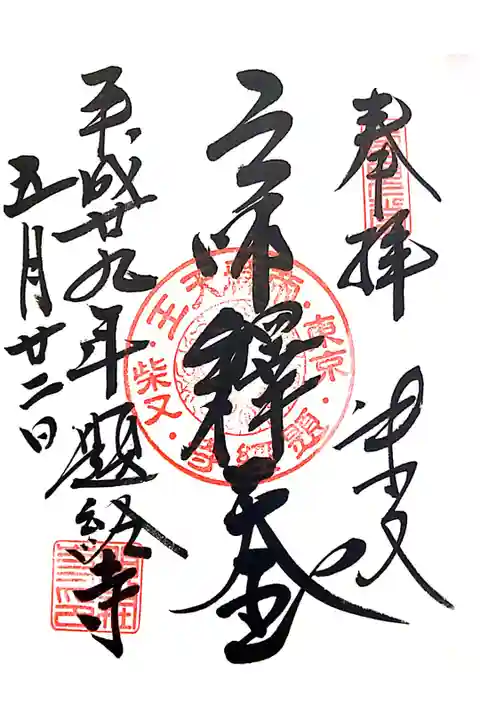 奉拝
柴又
帝釋天
平成廿九年 題経寺
五月廿二日
東京
帝釋天王
題経寺
柴又